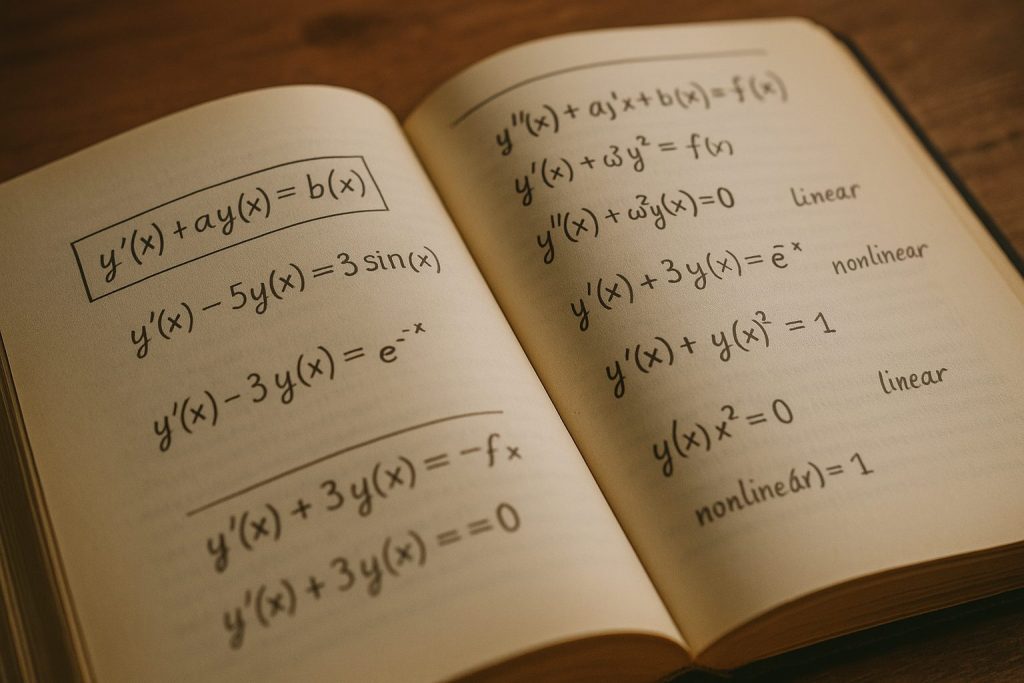 y′(x) + ay(x) = b(x)
y′(x) − 5y(x) = 3 sin(x)
y′(x) − 3y(x) = e⁻ˣ
y′(x) + 3y(x) = −fₓ
y′(x) + 3y(x) = = 0
y″(x) + ay'x + b(x) = f(x)
y′(x) + ω3y² = f(x)
y″(x) + ω²y(x) = 0 linear
y′(x) + 3y(x) = ēˣ nonlinear
y′(x) + y(x)² = 1
linear
y(x)x² = 0
nonlineár) = 1